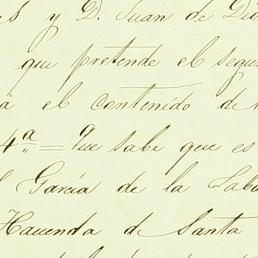 s y D. Juan de Dio
que pretende el segu
a el contenido de
4ª = Que sabe que es
l García de la Lab
Hacienda de Santa